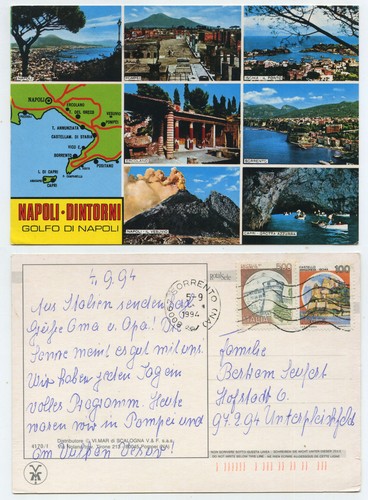 NAPOLI
POMPEI
ISCHIA - IL PORTO
NAPOLI
ERCOLANO
T. DEL GRECO
VESUVIO
POMPEI
T. ANNUNZIATA
CASTELLAM. DI STABIA
VICO E.
SORRENTO
POSITANO
I. DI CAPRI
CAPRI
ERCOLANO
SORRENTO
NAPOLI-DINTORNI
GOLFO DI NAPOLI
NAPOLI - IL VESUVIO
CAPRI - GROTTA AZZURRA
4.9.94
Aus Italien senden
Grüße Oma u. Opa! Die
Sonne meint es gut mit uns.
Wir haben jeden Tag ein
volles Programm. Heute
waren wir in Pompei und
am Vulkan Vesuv!
SORRENTO (NA)
5-9
1994
500
100
Familie
Bertram Seifert
Hofstadt
94294 Unterpleichfeld
4178/1
Distributore G. VI.MAR di SCALOGNA V & F s.a.s.